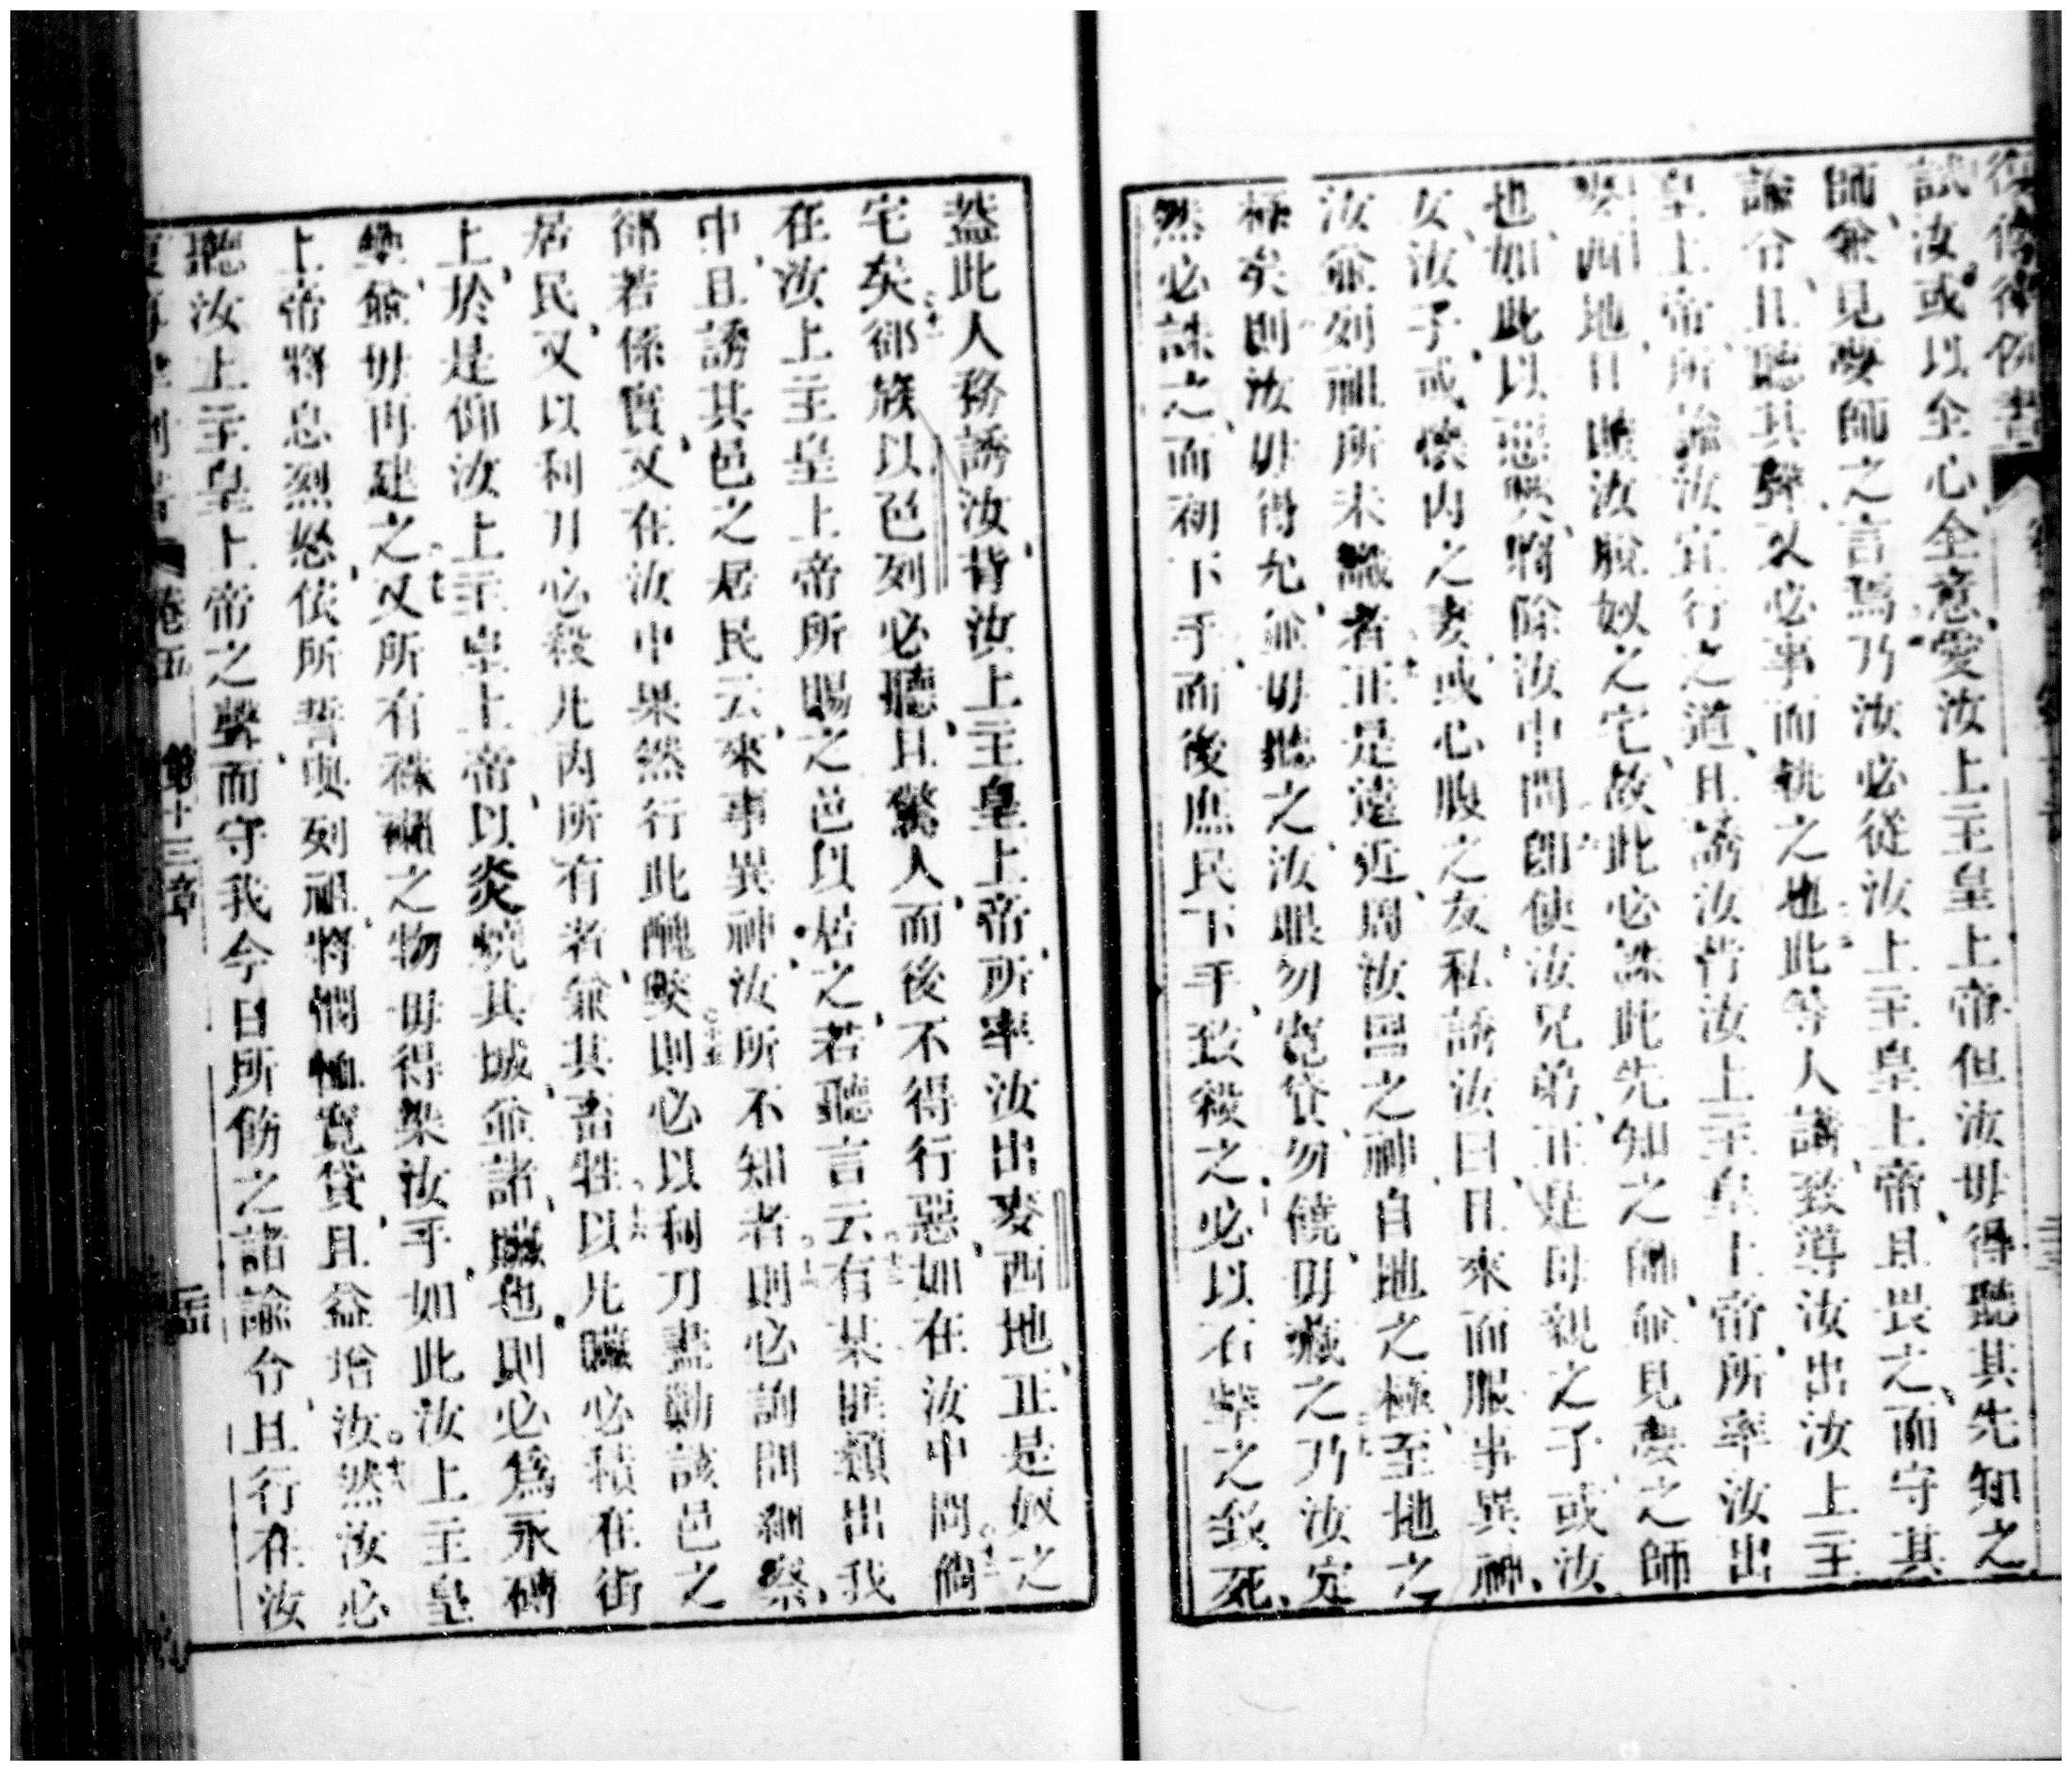 復傳律例書
試汝或以全心全意愛汝上主皇上帝但汝毋得聽其先知之
師兼見夢師之言焉乃汝必從汝上主皇上帝且畏之而守其
諭令且聽其聲又必事而執之也此等人講致導汝出汝上主
皇上帝所諭汝宜行之道且誘汝背汝上主皇上帝所率汝出
麥西地且贖汝脫奴之宅故此必誅此先知之師並見夢之師
也如此以惡與隔除汝中間卽使汝兄弟正是母親之子或汝
女汝子或懷內之妻或心腹之友私語汝曰且來而服事異神
汝並列祖所未識者正是遠近周汝囯之神自地之極至地之
極矣則汝毋得允並毋聽之汝眼勿寬貸勿饒毋藏之乃汝定
然必誅之而初下手而後庶民下手致殺之必以石擊之致死
蓋此人務誘汝背汝上主皇上帝所率汝出麥西地正是奴之
宅矣卻族以色列必聽且驚人而後不得行惡如在汝中間倘
在汝上主皇上帝所賜之邑以居之若聽言云有某匪類出我
中且誘其邑之居民云來事異神汝所不知者則必詢問細察
卻若係實又在汝中果然行此醜獘則必以利刀盡勦該邑之
居民又以利刀必殺凡內所有者兼其畜牲以凡贓必積在街
上於是仰汝上主皇上帝以炎燒其城並諸贓也則必爲永磚
壘並毋再建之又所有禄禰之物毋得染汝手如此汝上主皇
上帝將息烈怒依所誓與列祖將憫恤寬貸且益增汝然汝必
聽汝上主皇上帝之聲而守我今日所飭之諸諭令且行在汝
復傳律例書 卷五 第十三章